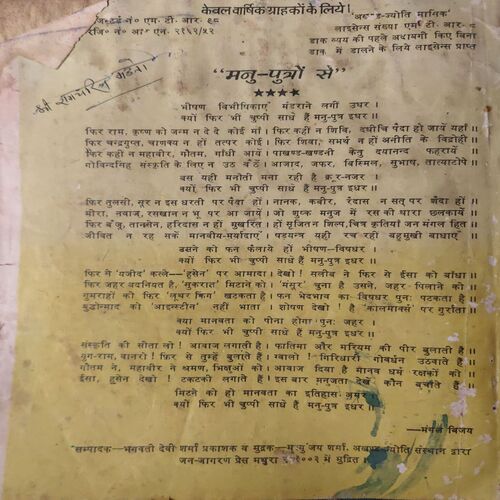 केवल वार्षिक ग्राहकों के लिये।
"अखण्ड-ज्योति मासिक"
लाइसेन्स संख्या एम० टी० आर- ८
रजि० नं० आर० एन० २१६२/५२
डाक व्यय की पहले अदायगी किए बिना
डाक में डालने के लिये लाइसेन्स प्राप्त
श्री रामचरित्र
"मनु-पुत्रों से"
★★★★
भीषण विभीषिकाएँ मंडराने लगीं उधर ।
क्यों फिर भी चुप्पी साधे हैं मनु-पुत्र इधर ।।
फिर राम, कृष्ण को जन्म न दे दे कोई माँ । फिर कहीं न शिवि, दधीचि पैदा हो जायें यहाँ ।।
फिर चन्द्रगुप्त, चाणक्य न हों तत्पर कोई । फिर शिवा, समर्थ न हों अनीति के विद्रोही ।।
फिर कहीं न महावीर, गौतम, गाँधी आयें । पाखण्ड-खण्डनी केतु दयानन्द फहरायें ।।
गोविन्दसिंह संस्कृति के लिए न उठ बैठें । आजाद, जफर, बिस्मिल, सुभाष, तात्याटोपे ।।
बस यही मनौती मना रही है क्रूर-नजर ।
क्यों, फिर भी चुप्पी साधे हैं मनु-पुत्र इधर ।।
फिर तुलसी, सूर न इस धरती पर पैदा हों । नानक, कबीर, रैदास न सत् पर शैदा हों ।।
मीरा, नवाज, रसखान न भू पर आ जायें । जो शुष्क मनुज में रस की धारा छलकायें ।।
फिर बैजू, तानसेन, हरिदास न हों मुखरित । हों सृजित न शिल्प, चित्र कृतियाँ जन मंगल हित ।।
जीवित न रह सकें मानवीय-मर्यादाएँ । षड़यन्त्र यही रच रही बहुमुखी बाधाएँ ।।
डसने को फन फैलाये हों भीषण-विषधर ।
क्यों फिर भी चुप्पी साधे हैं मनु-पुत्र इधर ।।
फिर से 'यजीद' कत्ले—'हुसेन' पर आमादा । देखो ! सलीब ने फिर से ईसा को बाँधा ।।
फिर जहर बदनियत है, 'सुकरात' मिटाने को । 'मंसूर' चुना है उसने, जहर पिलाने को ।।
गुमराहों को फिर 'लूथर किंग' खटकता है । फन भेदभाव का विषधर पुनः पटकता है ।।
बुद्धोन्माद को 'आइन्स्टीन' नहीं भाता । शोषण देखो ! है 'कार्लमार्क्स' पर गुर्राता ।।
क्या मानवता को पीना होगा पुनः जहर ।
क्यों फिर भी चुप्पी साधे हैं मनु-पुत्र इधर ।।
संस्कृति की सीता लो ! आवाज लगाती है । फातिमा और मरियम की पीर बुलाती है ।।
युग-राम, वानरो ! फिर से तुम्हें बुलाते हैं । ग्वालो ! गिरिधारी गोवर्धन उठवाते हैं ।।
गौतम ने, महावीर ने श्रमण, भिक्षुओं को । आवाज दिया है मानव धर्म रक्षकों को ।।
ईसा, हुसेन देखो ! टकटकी लगाते हैं । इस बार मनुजता देखें कौन बचाते हैं ।।
मिटने को हो मानवता का इतिहास अमर ।
क्यों फिर भी चुप्पी साधे हैं मनु-पुत्र इधर ।।
—मंगल विजय
सम्पादक—भगवती देवी शर्मा प्रकाशक व मुद्रक—मृत्युंजय शर्मा, अखण्ड-ज्योति संस्थान द्वारा
जन-जागरण प्रेस मथुरा में मुद्रित ।